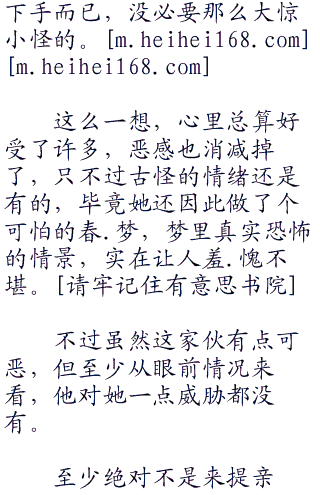 下手而已，没必要那么大惊
小怪的。[m.heihei168.com]
[m.heihei168.com]
这么一想，心里总算好
受了许多，恶感也消减掉
了，只不过古怪的情绪还是
有的，毕竟她还因此做了个
可怕的春.梦，梦里真实恐怖
的情景，实在让人羞.愧不
堪。[请牢记住有意思书院]
不过虽然这家伙有点可
恶，但至少从眼前情况来
看，他对她一点威胁都没
有。
至少绝对不是来提亲